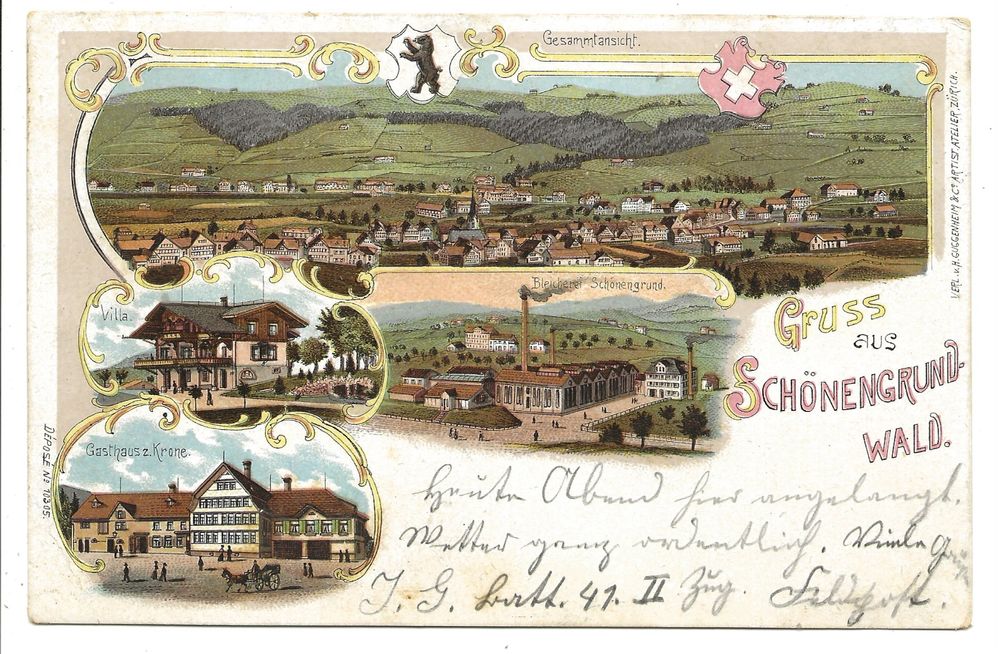 Gesammtansicht.
VERL. v. H. GUGGENHEIM & Cº ARTIST. ATELIER, ZÜRICH.
Villa.
Bleicherei Schönengrund.
Gruss
aus
SCHÖNENGRUND-
WALD.
Gasthaus z. Krone.
DÉPOSÉ Nº 10305.
Heute Abend hier angelangt.
Wetter ganz ordentlich. Viele
J. G. Batt. 41. II Zug. Feldpost.